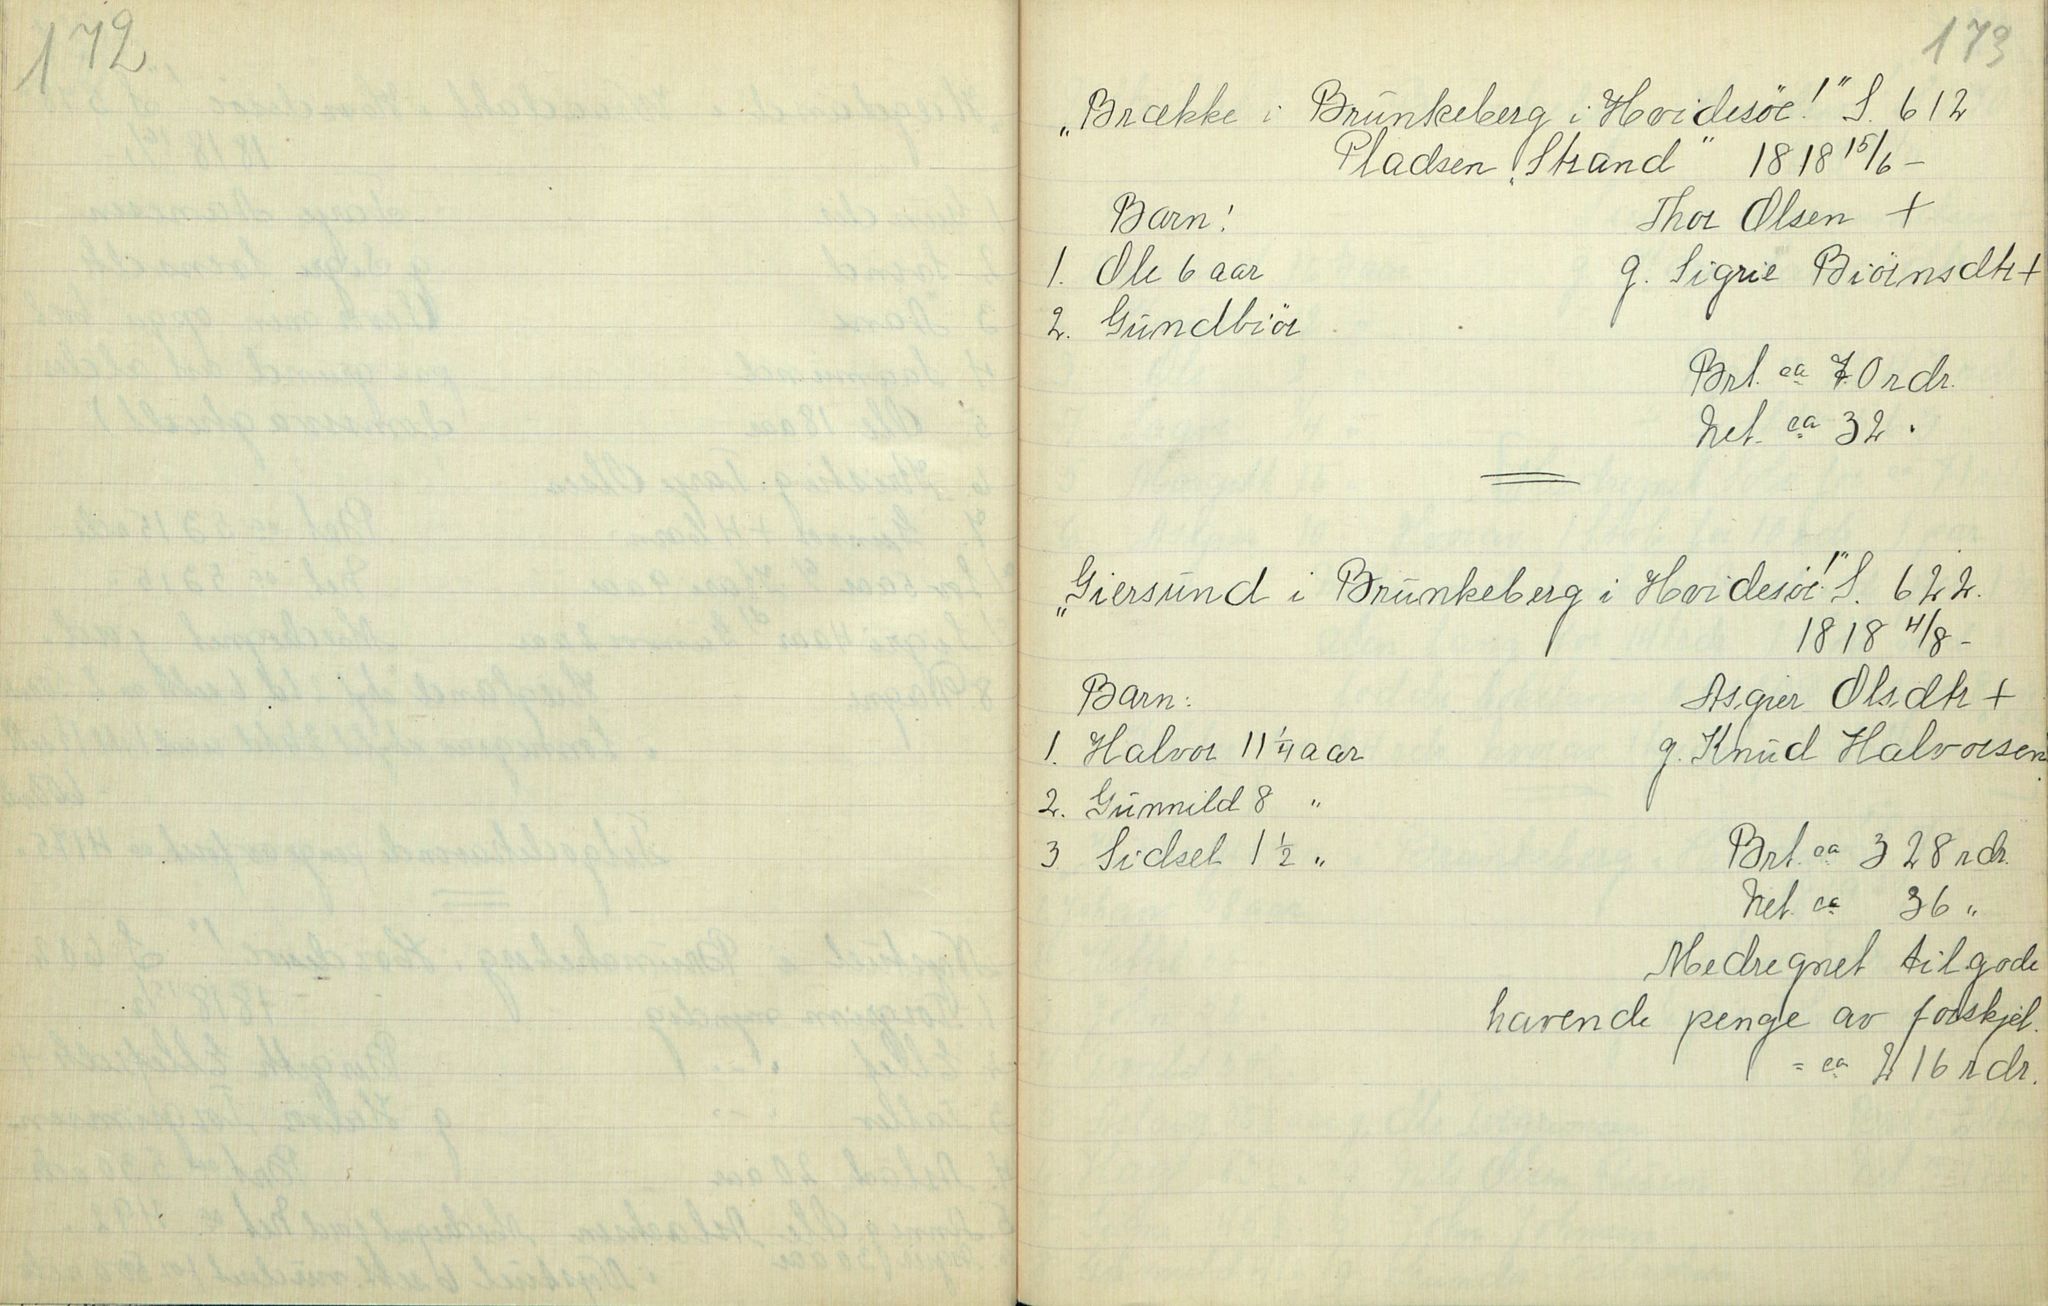 172
173
„Brække i Brünkeberg i Hvidesöe!" S. 612
Pladsen „Strand" 1818 15/6 –
Barn: Thor Olsen +
1. Ole 6 aar g. Sigrie Biörnsdtr +
2. Gündbiör
Brt. ca 70 rdr.
Net. ca 32 "
„Giersünd i Brünkeberg i Hvidesöe!" S. 622.
1818 4/8 –
Barn: Asgier Olsdtr +
1. Halvor 11 1/4 aar g. Knüd Halvorsen
2. Günnild 8 "
3 Sidsel 1 1/2 " Brt. ca 328 rdr.
Net. ca 36 "
Medregnet tilgode
havende penge av forskjel.
= ca 216 rdr.